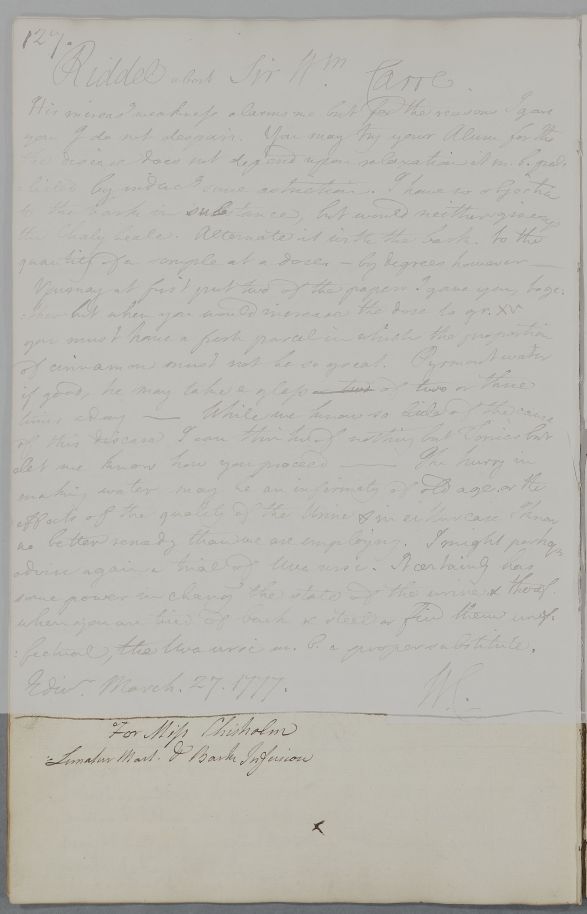 127.
Riddel about Sir Wm Carre
His increas'd weakness alarms me but for the reasons I gave
you I do not despair. You may try your Alum for tho
the disease does not depend upon relaxation it m. b. pal
:liated by induc.g some astriction. I have no objection
to the bark in substance, but would neither give up
the Chalybeate. Alternate it with the bark to the
quantity of a scruple at a dose. — by degrees however —
You may at first put two of the papers I gave you, toge:
:ther but when you would increase the dose to gr. xv
you must have a fresh parcel in which the proportion
of cinnamon must not be so great. Pyrmont water
if good, he may take a glass of two or three
times a day — While we know so little of the cause
of this disease I can think of nothing but Tonics but
let me know how you proceed — The hurry in
making water may be an infirmity of old age or the
effects of the quality of the Urine & in either case I know
no better remedy than we are employing. I might perhaps
advise again a trial of Uva ursi. It certainly has
some power in chang.g the state of the urine &
when you are tired of bark & steel or find them inef:
:fectual, the Uva ursi m. b. a proper substitute.
Edinr. March. 27. 1777. W. C.
For Miss Chisholm
Limatur Mart. & Bark Infusion
x